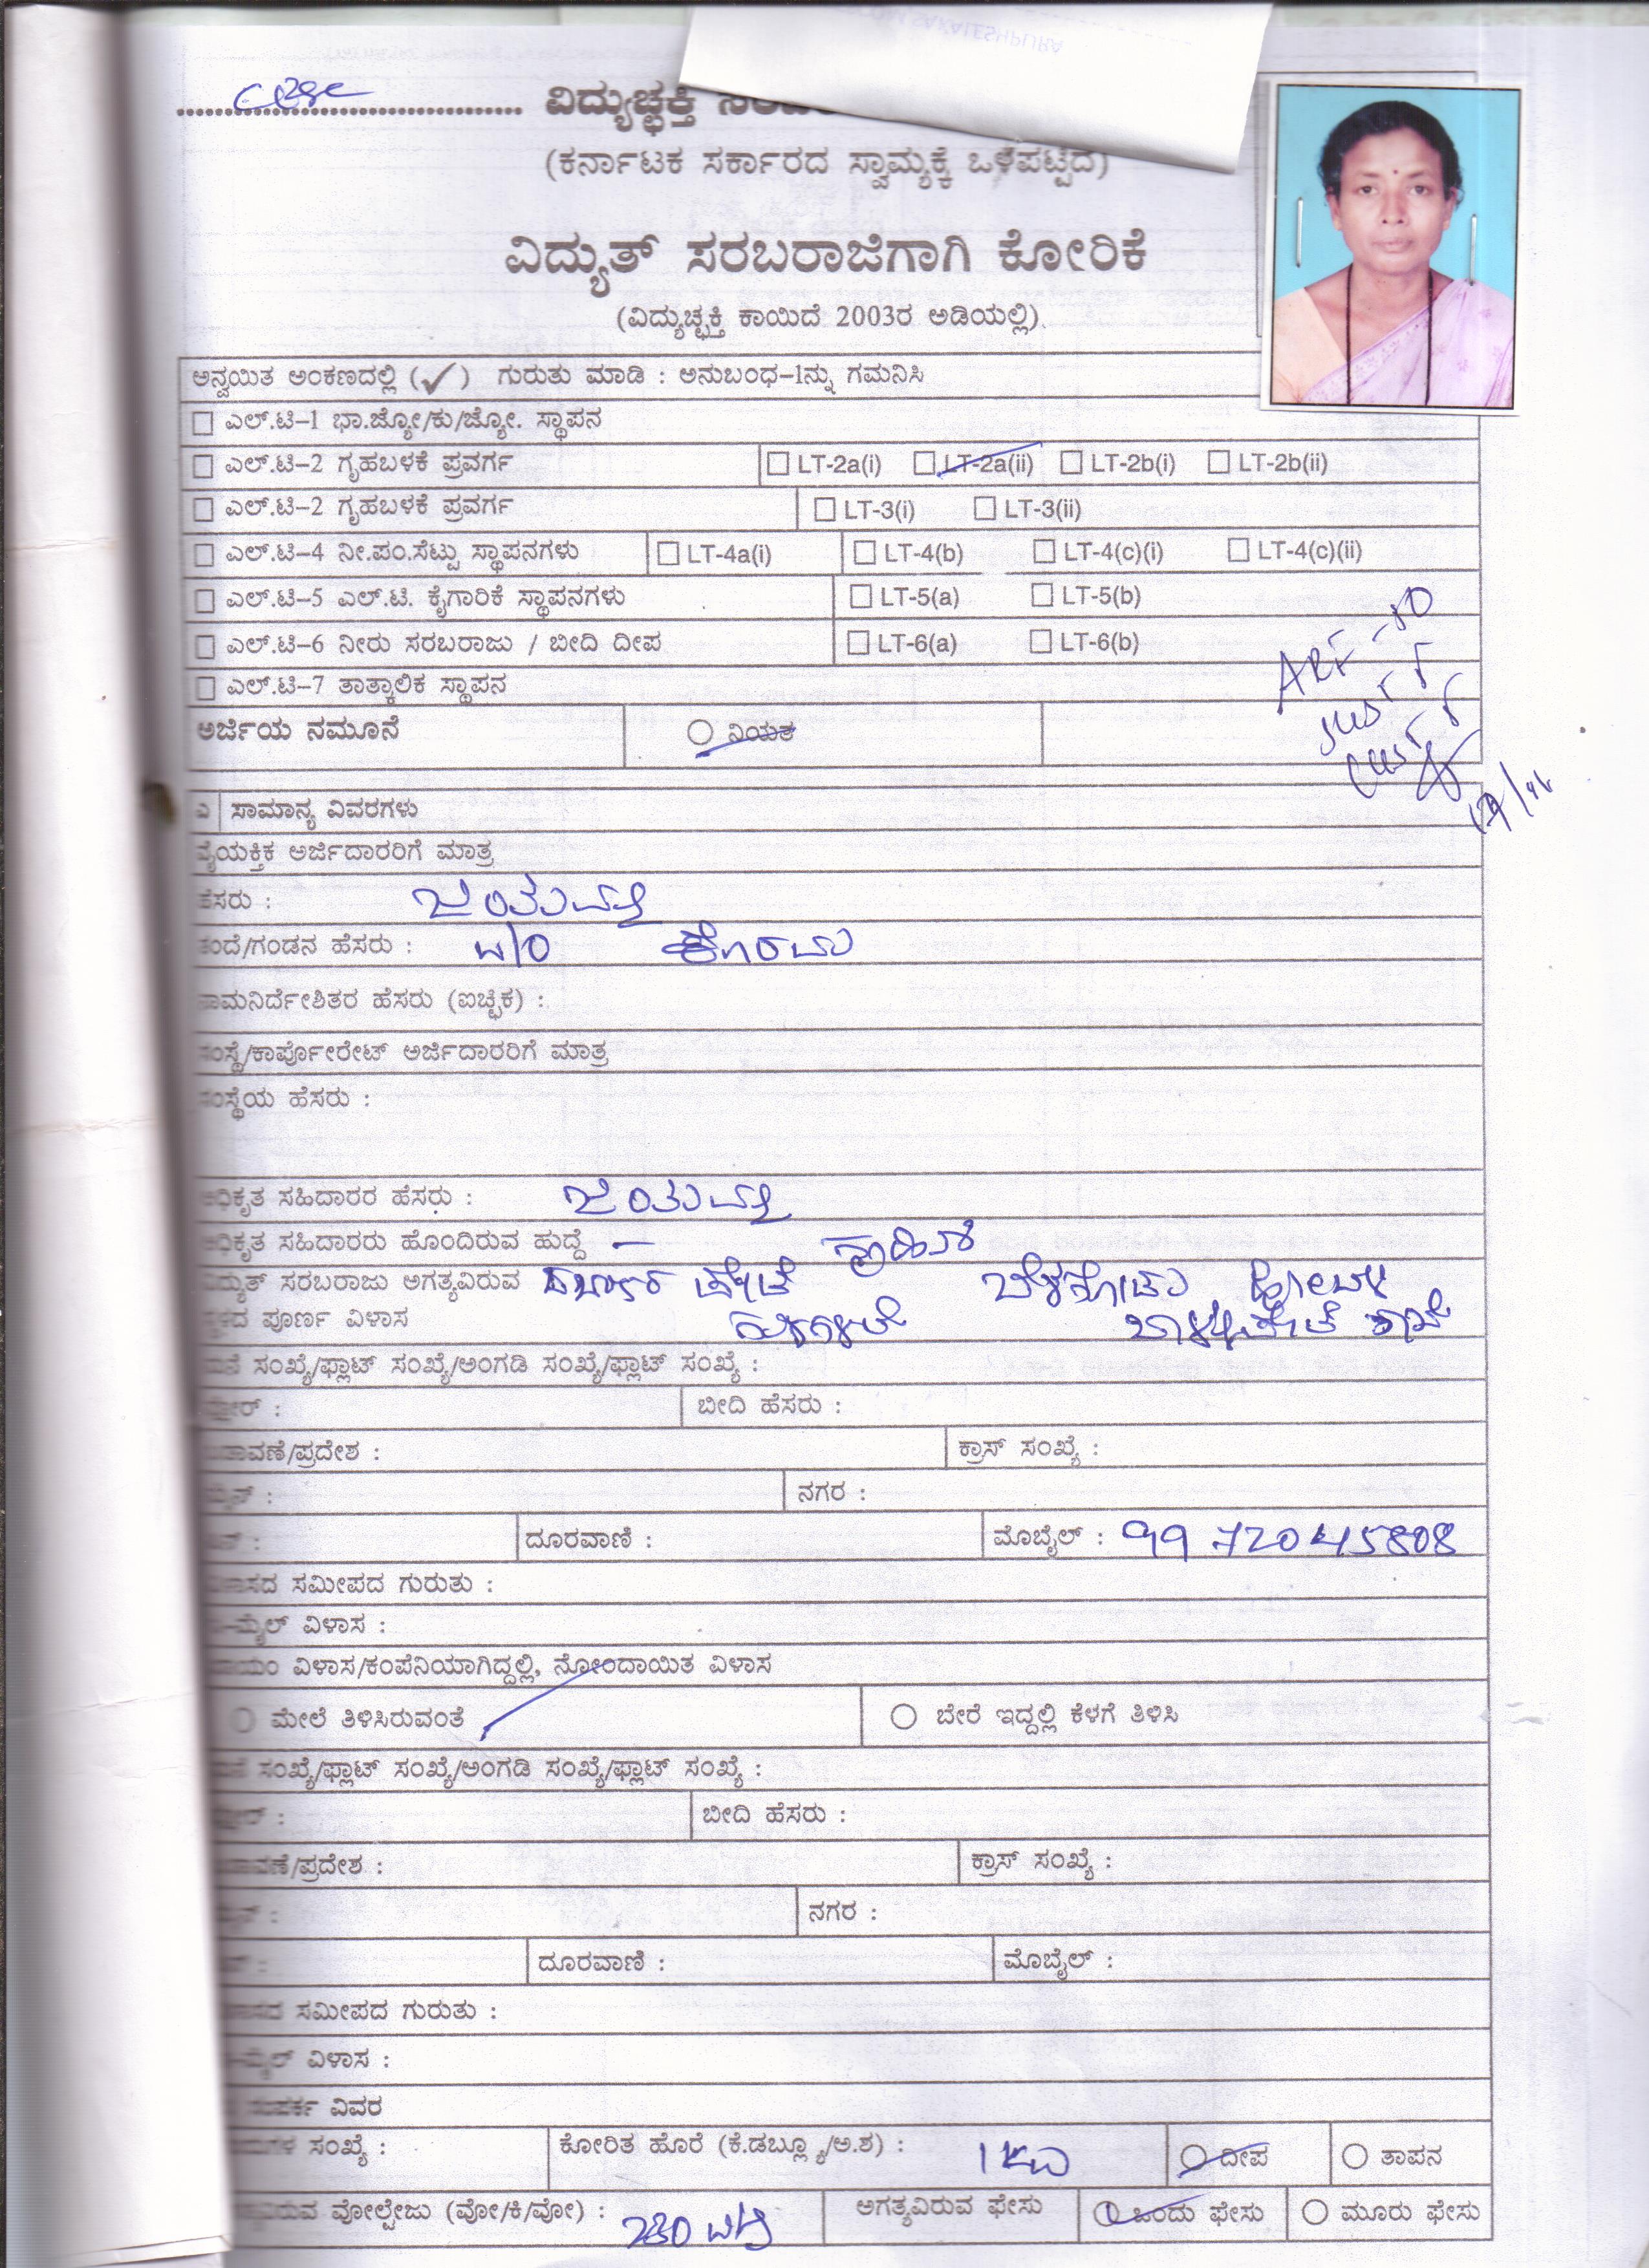 ವಿದ್ಯುಚ್ಛಕ್ತಿ
(ಕರ್ನಾಟಕ ಸರ್ಕಾರದ ಸ್ವಾಮ್ಯಕ್ಕೆ ಒಳಪಟ್ಟಿದೆ)
ವಿದ್ಯುತ್ ಸರಬರಾಜಿಗಾಗಿ ಕೋರಿಕೆ
(ವಿದ್ಯುಚ್ಛಕ್ತಿ ಕಾಯಿದೆ 2003ರ ಅಡಿಯಲ್ಲಿ)
ಅನ್ವಯಿತ ಅಂಕಣದಲ್ಲಿ (✓) ಗುರುತು ಮಾಡಿ : ಅನುಬಂಧ-1ನ್ನು ಗಮನಿಸಿ
ಎಲ್.ಟಿ-1 ಭಾ.ಜ್ಯೋ/ಕು/ಜ್ಯೋ. ಸ್ಥಾಪನ
ಎಲ್.ಟಿ-2 ಗೃಹಬಳಕೆ ಪ್ರವರ್ಗ LT-2a(i) LT-2a(ii) LT-2b(i) LT-2b(ii)
ಎಲ್.ಟಿ-2 ಗೃಹಬಳಕೆ ಪ್ರವರ್ಗ LT-3(i) LT-3(ii)
ಎಲ್.ಟಿ-4 ನೀ.ಪಂ.ಸೆಟ್ಟು ಸ್ಥಾಪನಗಳು LT-4a(i) LT-4(b) LT-4(c)(i) LT-4(c)(ii)
ಎಲ್.ಟಿ-5 ಎಲ್.ಟಿ. ಕೈಗಾರಿಕೆ ಸ್ಥಾಪನಗಳು LT-5(a) LT-5(b)
ಎಲ್.ಟಿ-6 ನೀರು ಸರಬರಾಜು / ಬೀದಿ ದೀಪ LT-6(a) LT-6(b)
ಎಲ್.ಟಿ-7 ತಾತ್ಕಾಲಿಕ ಸ್ಥಾಪನ
ಅರ್ಜಿಯ ನಮೂನೆ ನಿಯತ
ಎ ಸಾಮಾನ್ಯ ವಿವರಗಳು
ವೈಯಕ್ತಿಕ ಅರ್ಜಿದಾರರಿಗೆ ಮಾತ್ರ
ಹೆಸರು : ಜಯಮ್ಮ
ತಂದೆ/ಗಂಡನ ಹೆಸರು : w/o ಕೊರಮ
ನಾಮನಿರ್ದೇಶಿತರ ಹೆಸರು (ಐಚ್ಛಿಕ) :
ಸಂಸ್ಥೆ/ಕಾರ್ಪೋರೇಟ್ ಅರ್ಜಿದಾರರಿಗೆ ಮಾತ್ರ
ಸಂಸ್ಥೆಯ ಹೆಸರು :
ಅಧಿಕೃತ ಸಹಿದಾರರ ಹೆಸರು : ಜಯಮ್ಮ
ಅಧಿಕೃತ ಸಹಿದಾರರು ಹೊಂದಿರುವ ಹುದ್ದೆ –
ವಿದ್ಯುತ್ ಸರಬರಾಜು ಅಗತ್ಯವಿರುವ
ಸ್ಥಳದ ಪೂರ್ಣ ವಿಳಾಸ
ಮನೆ ಸಂಖ್ಯೆ/ಫ್ಲಾಟ್ ಸಂಖ್ಯೆ/ಅಂಗಡಿ ಸಂಖ್ಯೆ/ಫ್ಲಾಟ್ ಸಂಖ್ಯೆ :
ಬೀದಿ ಹೆಸರು :
ಬಡಾವಣೆ/ಪ್ರದೇಶ : ಕ್ರಾಸ್ ಸಂಖ್ಯೆ :
ನಗರ :
ದೂರವಾಣಿ : ಮೊಬೈಲ್ : 9972045808
ವಿಳಾಸದ ಸಮೀಪದ ಗುರುತು :
ಇ-ಮೈಲ್ ವಿಳಾಸ :
ಖಾಯಂ ವಿಳಾಸ/ಕಂಪೆನಿಯಾಗಿದ್ದಲ್ಲಿ, ನೋಂದಾಯಿತ ವಿಳಾಸ
ಮೇಲೆ ತಿಳಿಸಿರುವಂತೆ ಬೇರೆ ಇದ್ದಲ್ಲಿ ಕೆಳಗೆ ತಿಳಿಸಿ
ಮನೆ ಸಂಖ್ಯೆ/ಫ್ಲಾಟ್ ಸಂಖ್ಯೆ/ಅಂಗಡಿ ಸಂಖ್ಯೆ/ಫ್ಲಾಟ್ ಸಂಖ್ಯೆ :
ಬೀದಿ ಹೆಸರು :
ಬಡಾವಣೆ/ಪ್ರದೇಶ : ಕ್ರಾಸ್ ಸಂಖ್ಯೆ :
ನಗರ :
ದೂರವಾಣಿ : ಮೊಬೈಲ್ :
ವಿಳಾಸದ ಸಮೀಪದ ಗುರುತು :
ಇ-ಮೈಲ್ ವಿಳಾಸ :
ಸಂಪರ್ಕ ವಿವರ
ಸಂಖ್ಯೆ : ಕೋರಿತ ಹೊರೆ (ಕೆ.ಡಬ್ಲ್ಯೂ/ಅ.ಶ) : 1 KW ದೀಪ ತಾಪನ
ವೋಲ್ಟೇಜು (ವೋ/ಕಿ/ವೋ) : 230 ಅಗತ್ಯವಿರುವ ಫೇಸು ಒಂದು ಫೇಸು ಮೂರು ಫೇಸು